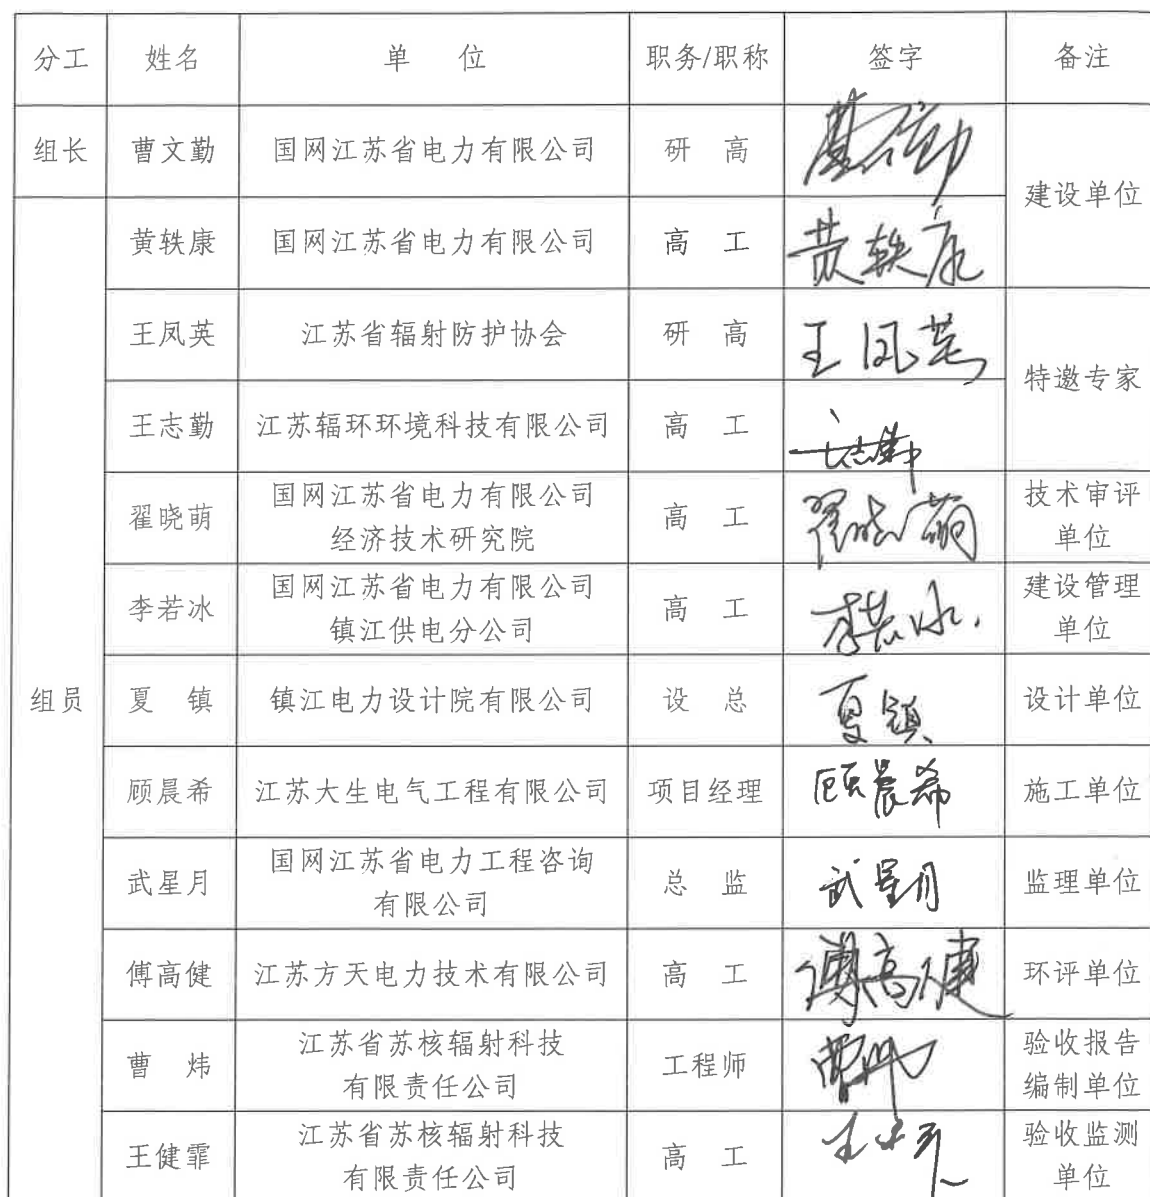 分工 姓名 单 位 职务/职称 签字 备注
组长 曹文勤 国网江苏省电力有限公司 研 高 曹文勤 建设单位
组员 黄轶康 国网江苏省电力有限公司 高 工 黄轶康
王凤英 江苏省辐射防护协会 研 高 王凤英 特邀专家
王志勤 江苏辐环环境科技有限公司 高 工 王志勤
翟晓萌 国网江苏省电力有限公司
经济技术研究院 高 工 翟晓萌 技术审评
单位
李若冰 国网江苏省电力有限公司
镇江供电分公司 高 工 李若冰 建设管理
单位
夏 镇 镇江电力设计院有限公司 设 总 夏镇 设计单位
顾晨希 江苏大生电气工程有限公司 项目经理 顾晨希 施工单位
武星月 国网江苏省电力工程咨询
有限公司 总 监 武星月 监理单位
傅高健 江苏方天电力技术有限公司 高 工 傅高健 环评单位
曹 炜 江苏省苏核辐射科技
有限责任公司 工程师 曹炜 验收报告
编制单位
王健霏 江苏省苏核辐射科技
有限责任公司 高 工 验收监测
单位